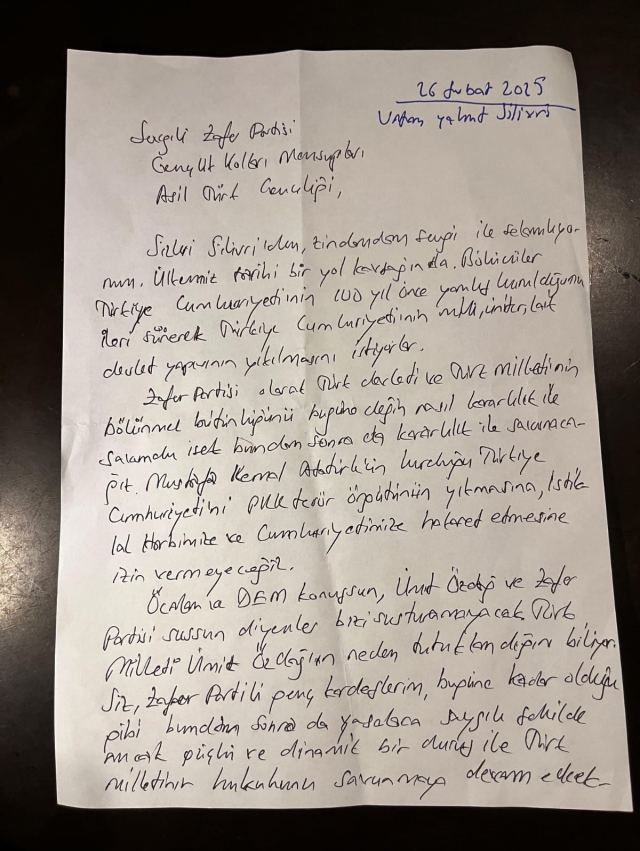 26 Şubat 2025
Vatan yahut Silivri
Sevgili Zafer Partisi
Gençlik Kolları Mensupları
Asil Türk Gençliği,
Sizleri Silivri'den, zindandan sevgi ile selamlıyo-
rum. Ülkemiz tarihi bir yol kavşağında. Bölücüler
Türkiye Cumhuriyetinin 100 yıl önce yanlış kurulduğunu
ileri sürerek Türkiye Cumhuriyetinin milli, üniter, laik
devlet yapısının yıkılmasını istiyorlar.
Zafer Partisi olarak Türk devleti ve Türk milletinin
bölünmez bütünlüğünü bugüne değin nasıl kararlılık ile
savunduk isek bundan sonra da kararlılık ile savunaca-
ğız. Mustafa Kemal Atatürk'ün kurduğu Türkiye
Cumhuriyetini PKK terör örgütünün yıkmasına, İstik-
lal Harbimize ve Cumhuriyetimize hakaret etmesine
izin vermeyeceğiz.
Öcalan ve DEM konuşsun, Ümit Özdağ ve Zafer
Partisi sussun diyenler bizi susturamayacak. Türk
Milleti Ümit Özdağ'ın neden tutuklandığını biliyor.
Siz, Zafer Partili genç kardeşlerim, bugüne kadar olduğu
gibi bundan sonra da yasalara saygılı şekilde
ancak güçlü ve dinamik bir duruş ile Türk
milletinin hukukunu savunmaya devam edecek-